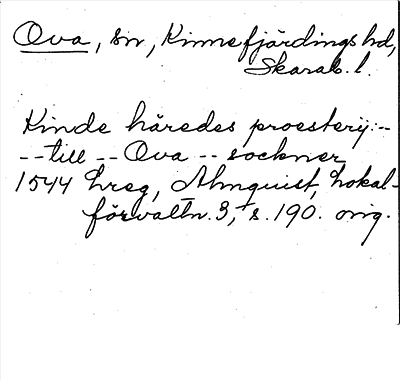 Ova, sn, Kinnefjärdings hd,
Skarab. l.
Kinde häredes proesterij:--
-- till -- Ova -- sockner
1544 Lreg, Almquist, Lokal-
förvaltn. 3, s. 190. orig.